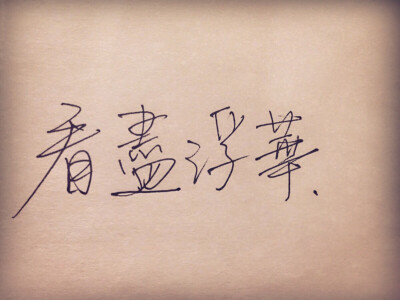 看盡浮華.